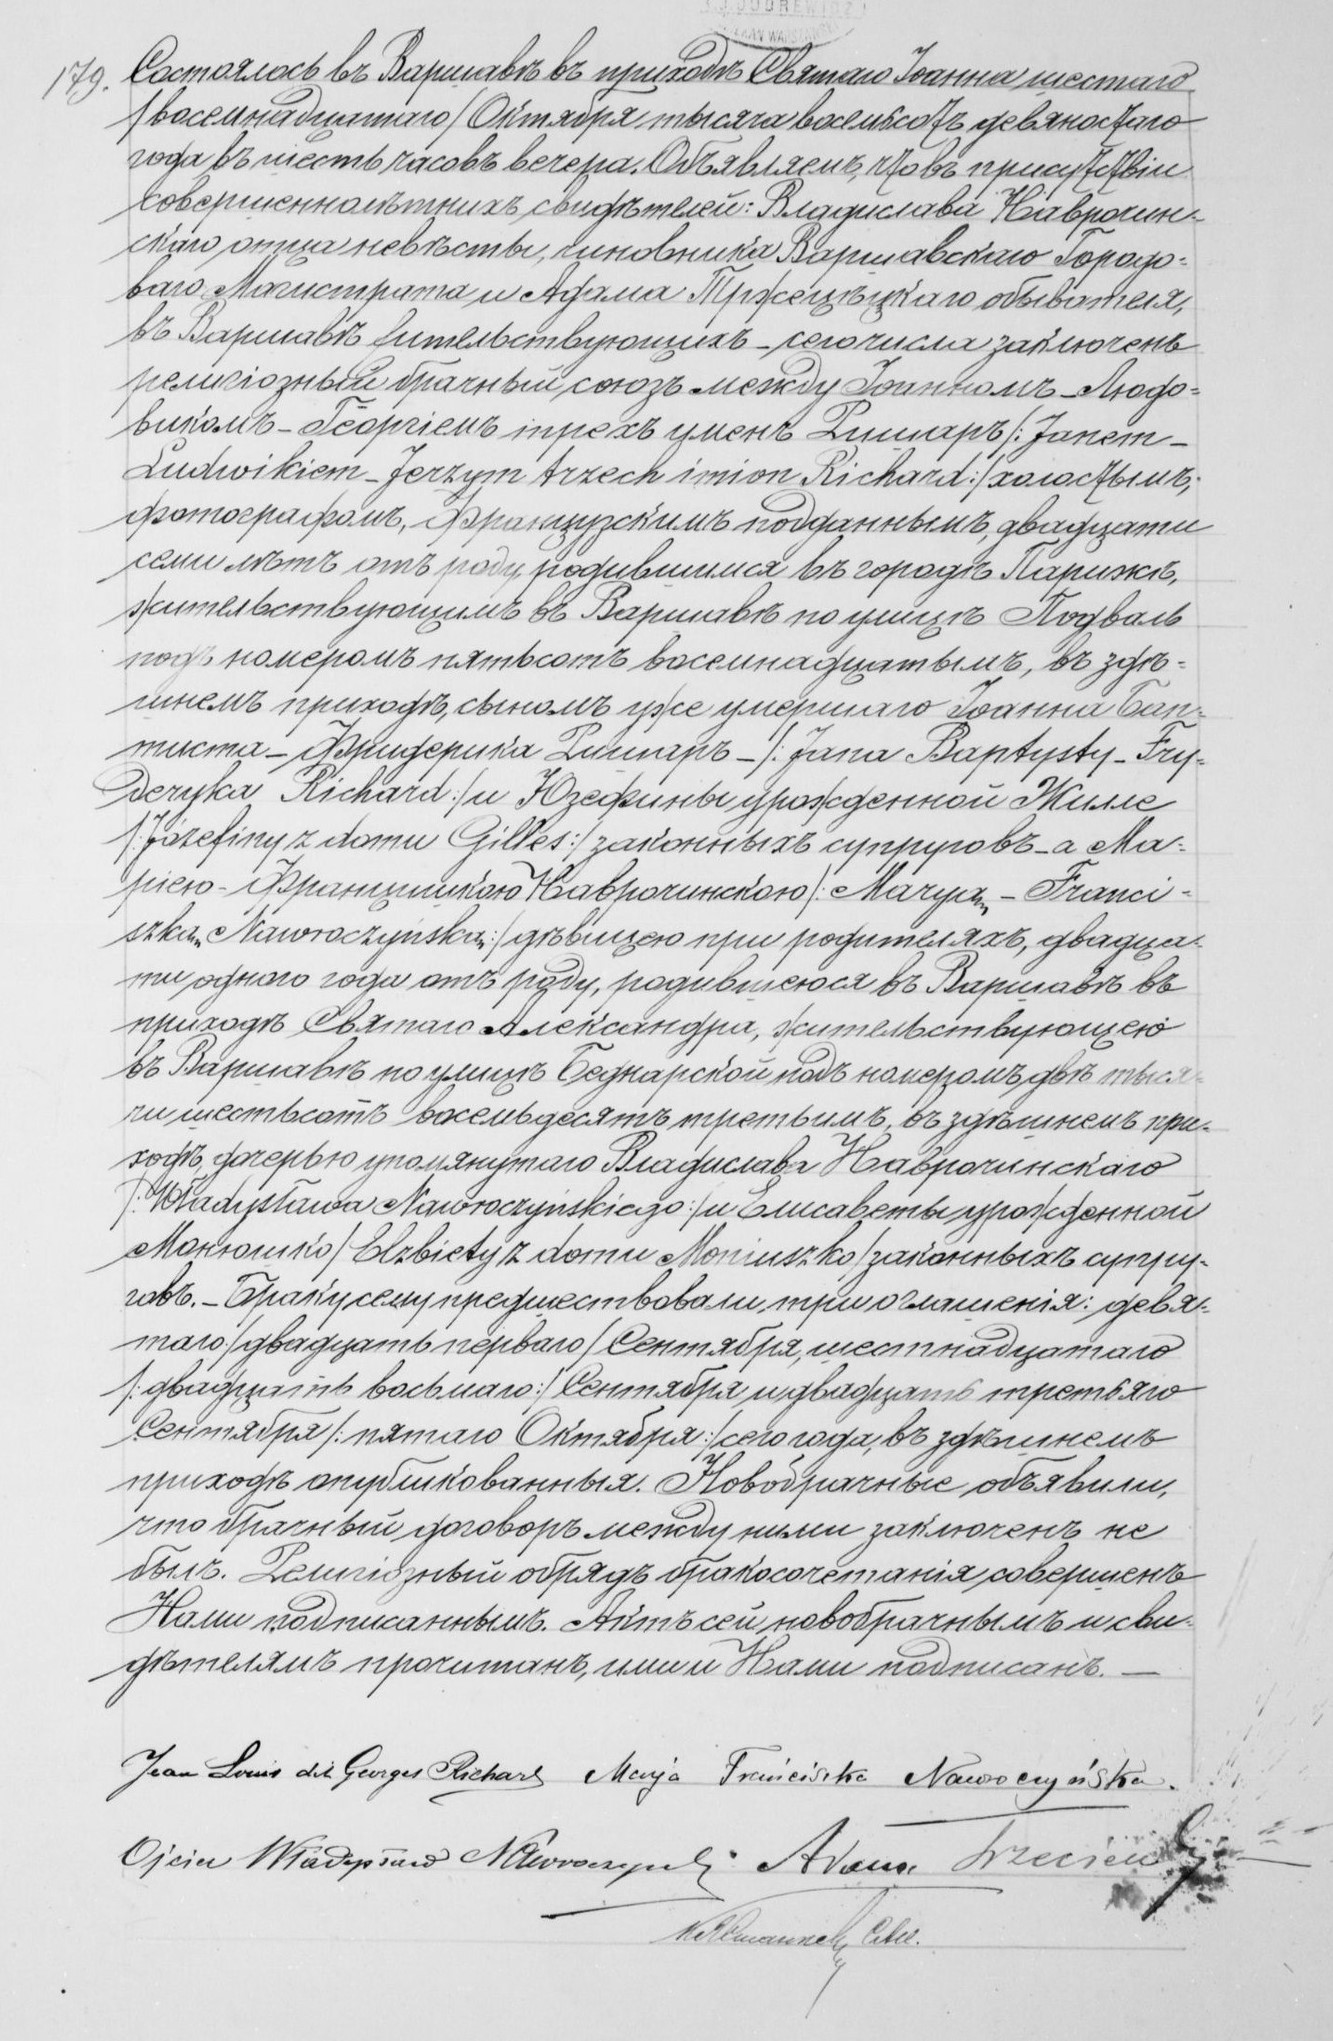 179. Состоялось въ Варшавѣ въ приходѣ Святаго Іоанна шестаго
/восемнадцатаго/ Октября тысяча восемьсотъ девяностаго
года въ шесть часовъ вечера. Объявляемъ, что въ присутствіи
совершеннолѣтнихъ свидѣтелей: Владислава Наврочин-
скаго отца невѣсты, чиновника Варшавскаго Городо-
ваго Магистрата и Адама Тржецѣцкаго обывателя,
въ Варшавѣ жительствующихъ - сего числа заключенъ
религіозный брачный союзъ между Іоанномъ - Людо-
викомъ - Георгіемъ трехъ именъ Ришаръ /: Janem -
Ludwikiem - Jerzym trzech imion Richard :/ холостымъ,
фотографомъ, Французскимъ подданнымъ, двадцати
семи лѣтъ отъ роду, родившимся въ городѣ Парижѣ,
жительствующимъ въ Варшавѣ по улицѣ Подваль
подъ номеромъ пятьсотъ восемнадцатымъ, въ здѣ-
шнемъ приходѣ, сыномъ уже умершаго Іоанна Бап-
тиста - Фридерика Ришаръ - /: Jana Baptysty - Fry-
deryka Richard :/ и Юзефины урожденной Жилле
/: Józefiny z domu Gilles :/ законныхъ супруговъ - а Ма-
ріею - Францишкою Наврочинскою /: Maryą - Franci-
szką Nawroczyńską :/ дѣвицею при родителяхъ, двадца-
ти одного года отъ роду, родившеюся въ Варшавѣ въ
приходѣ Святаго Александра, жительствующею
въ Варшавѣ по улицѣ Беднарской подъ номеромъ двѣ тыся-
чи шестьсотъ восемьдесятъ третьимъ, въ здѣшнемъ при-
ходѣ, дочерью упомянутаго Владислава Наврочинскаго
/: Władysława Nawroczyńskiego :/ и Елисаветы урожденной
Монюшко / Elżbiety z domu Moniuszko / законныхъ супру-
говъ. - Браку сему предшествовали три оглашенія: девя-
таго /двадцать перваго/ Сентября, шестнадцатаго
/: двадцать восьмаго :/ Сентября и двадцать третьяго
Сентября /: пятаго Октября :/ сего года, въ здѣшнемъ
приходѣ опубликованныя. Новобрачные объявили,
что брачный договоръ между ними заключенъ не
былъ. Религіозный обрядъ бракосочетанія совершенъ
Нами подписаннымъ. Актъ сей новобрачнымъ и сви-
дѣтелямъ прочитанъ, ими и Нами подписанъ. -
Jean Louis dit Georges Richard Marja Franciszka Nawroczyńska.
Ojciec Władysław Nawroczyński Adam